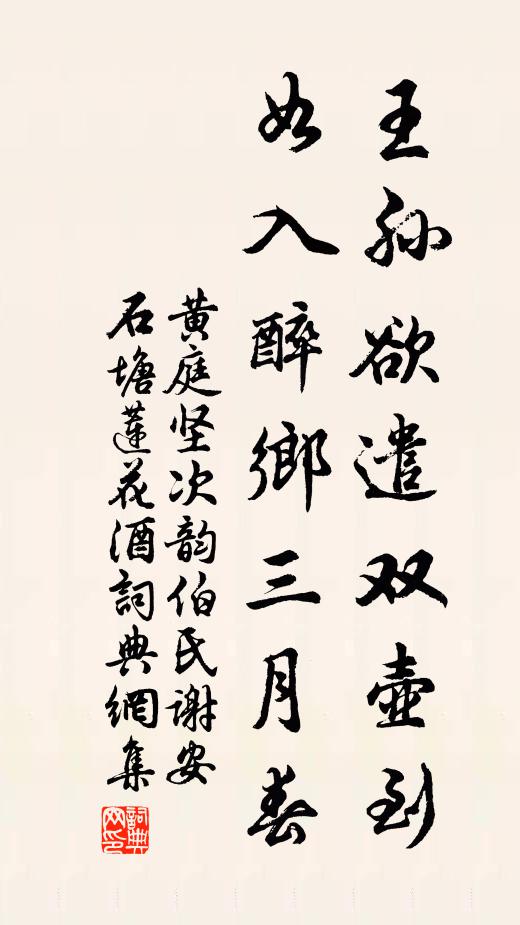 王孙欲遣双壶到
如入醉鄉三月春
黄庭坚次韵伯氏谢安
石塘莲花酒詞典網集
詞典